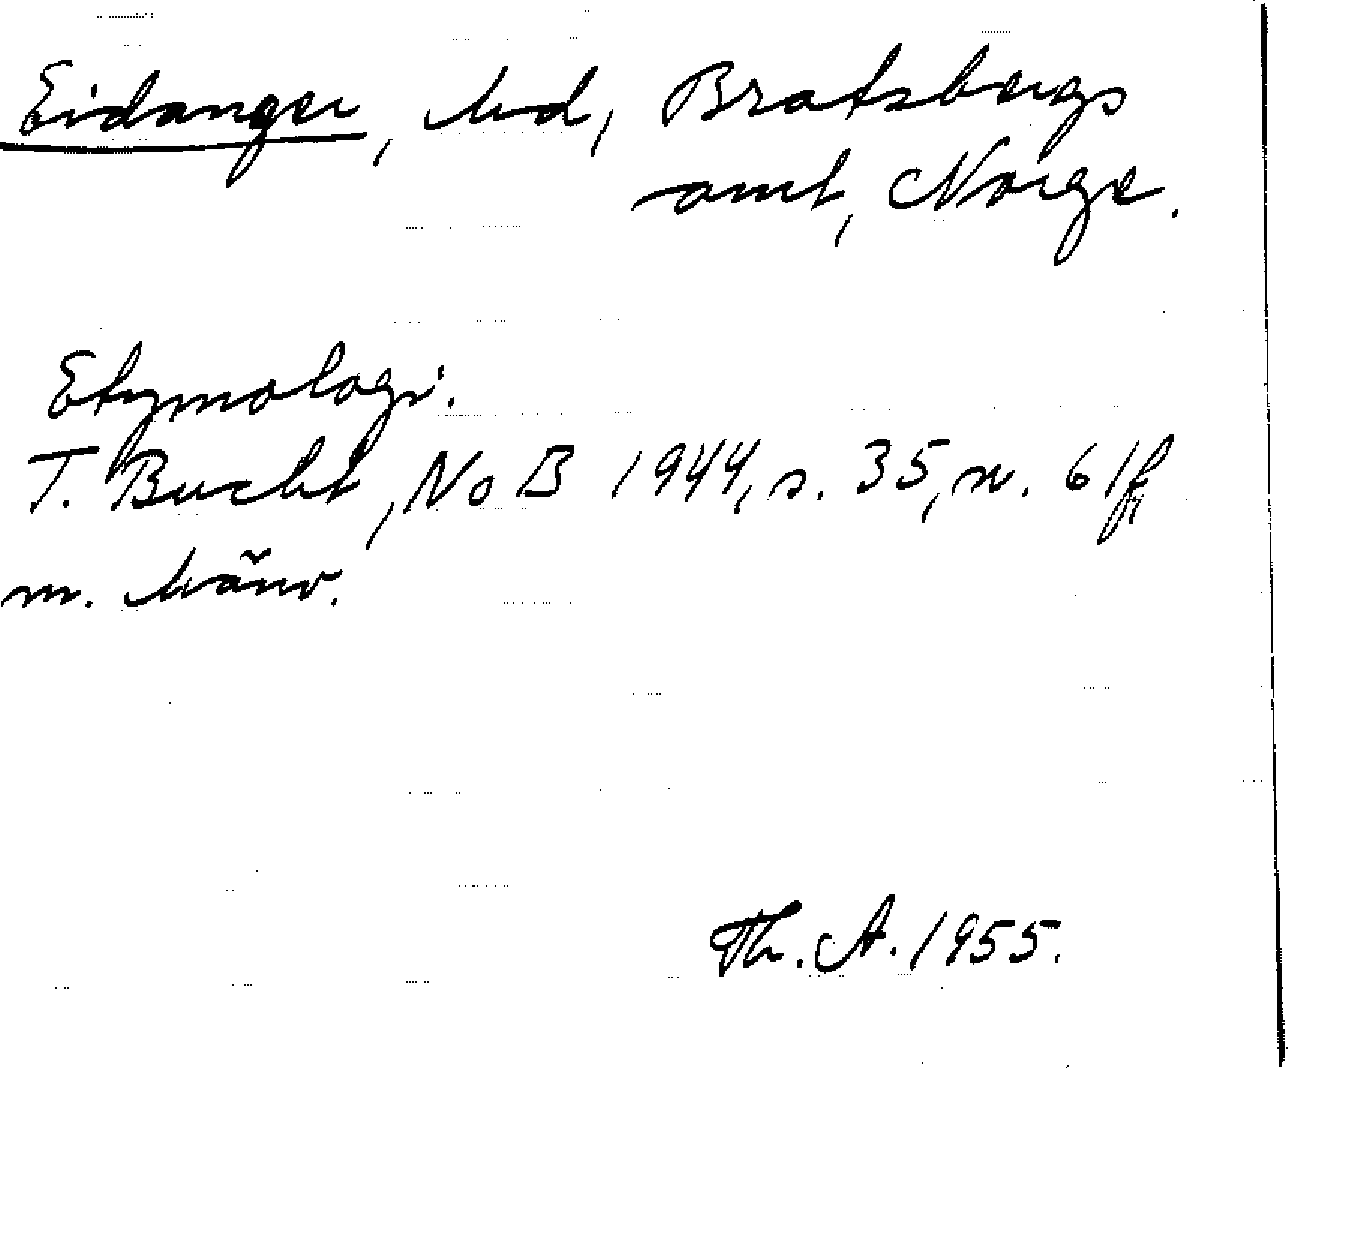 Eidanger, hd, Bratsbergs
amt, Norge.
Etymologi.
T. Bucht, NoB 1944, s. 35, n. 61 f
m. hänv.
Th. A. 1955.